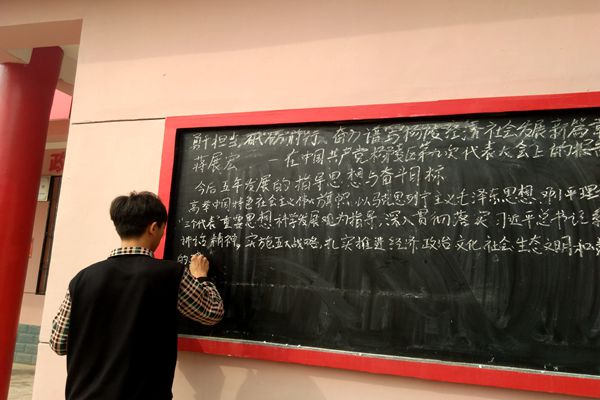 勇于担当 砥砺前行 奋力谱写杨陵经济社会发展新篇章
蒋展宏 — 在中国共产党杨陵区第次代表大会上的报告
今后五年发展的指导思想与奋斗目标
高举中国特色社会主义伟大旗帜，以马克思列宁主义毛泽东思想，邓小平理
"三个代表"重要思想，科学发展观为指导，深入贯彻落实习近平总书记系
讲话精神，实施五大战略，扎实推进经济政治文化社会生态文明和
的